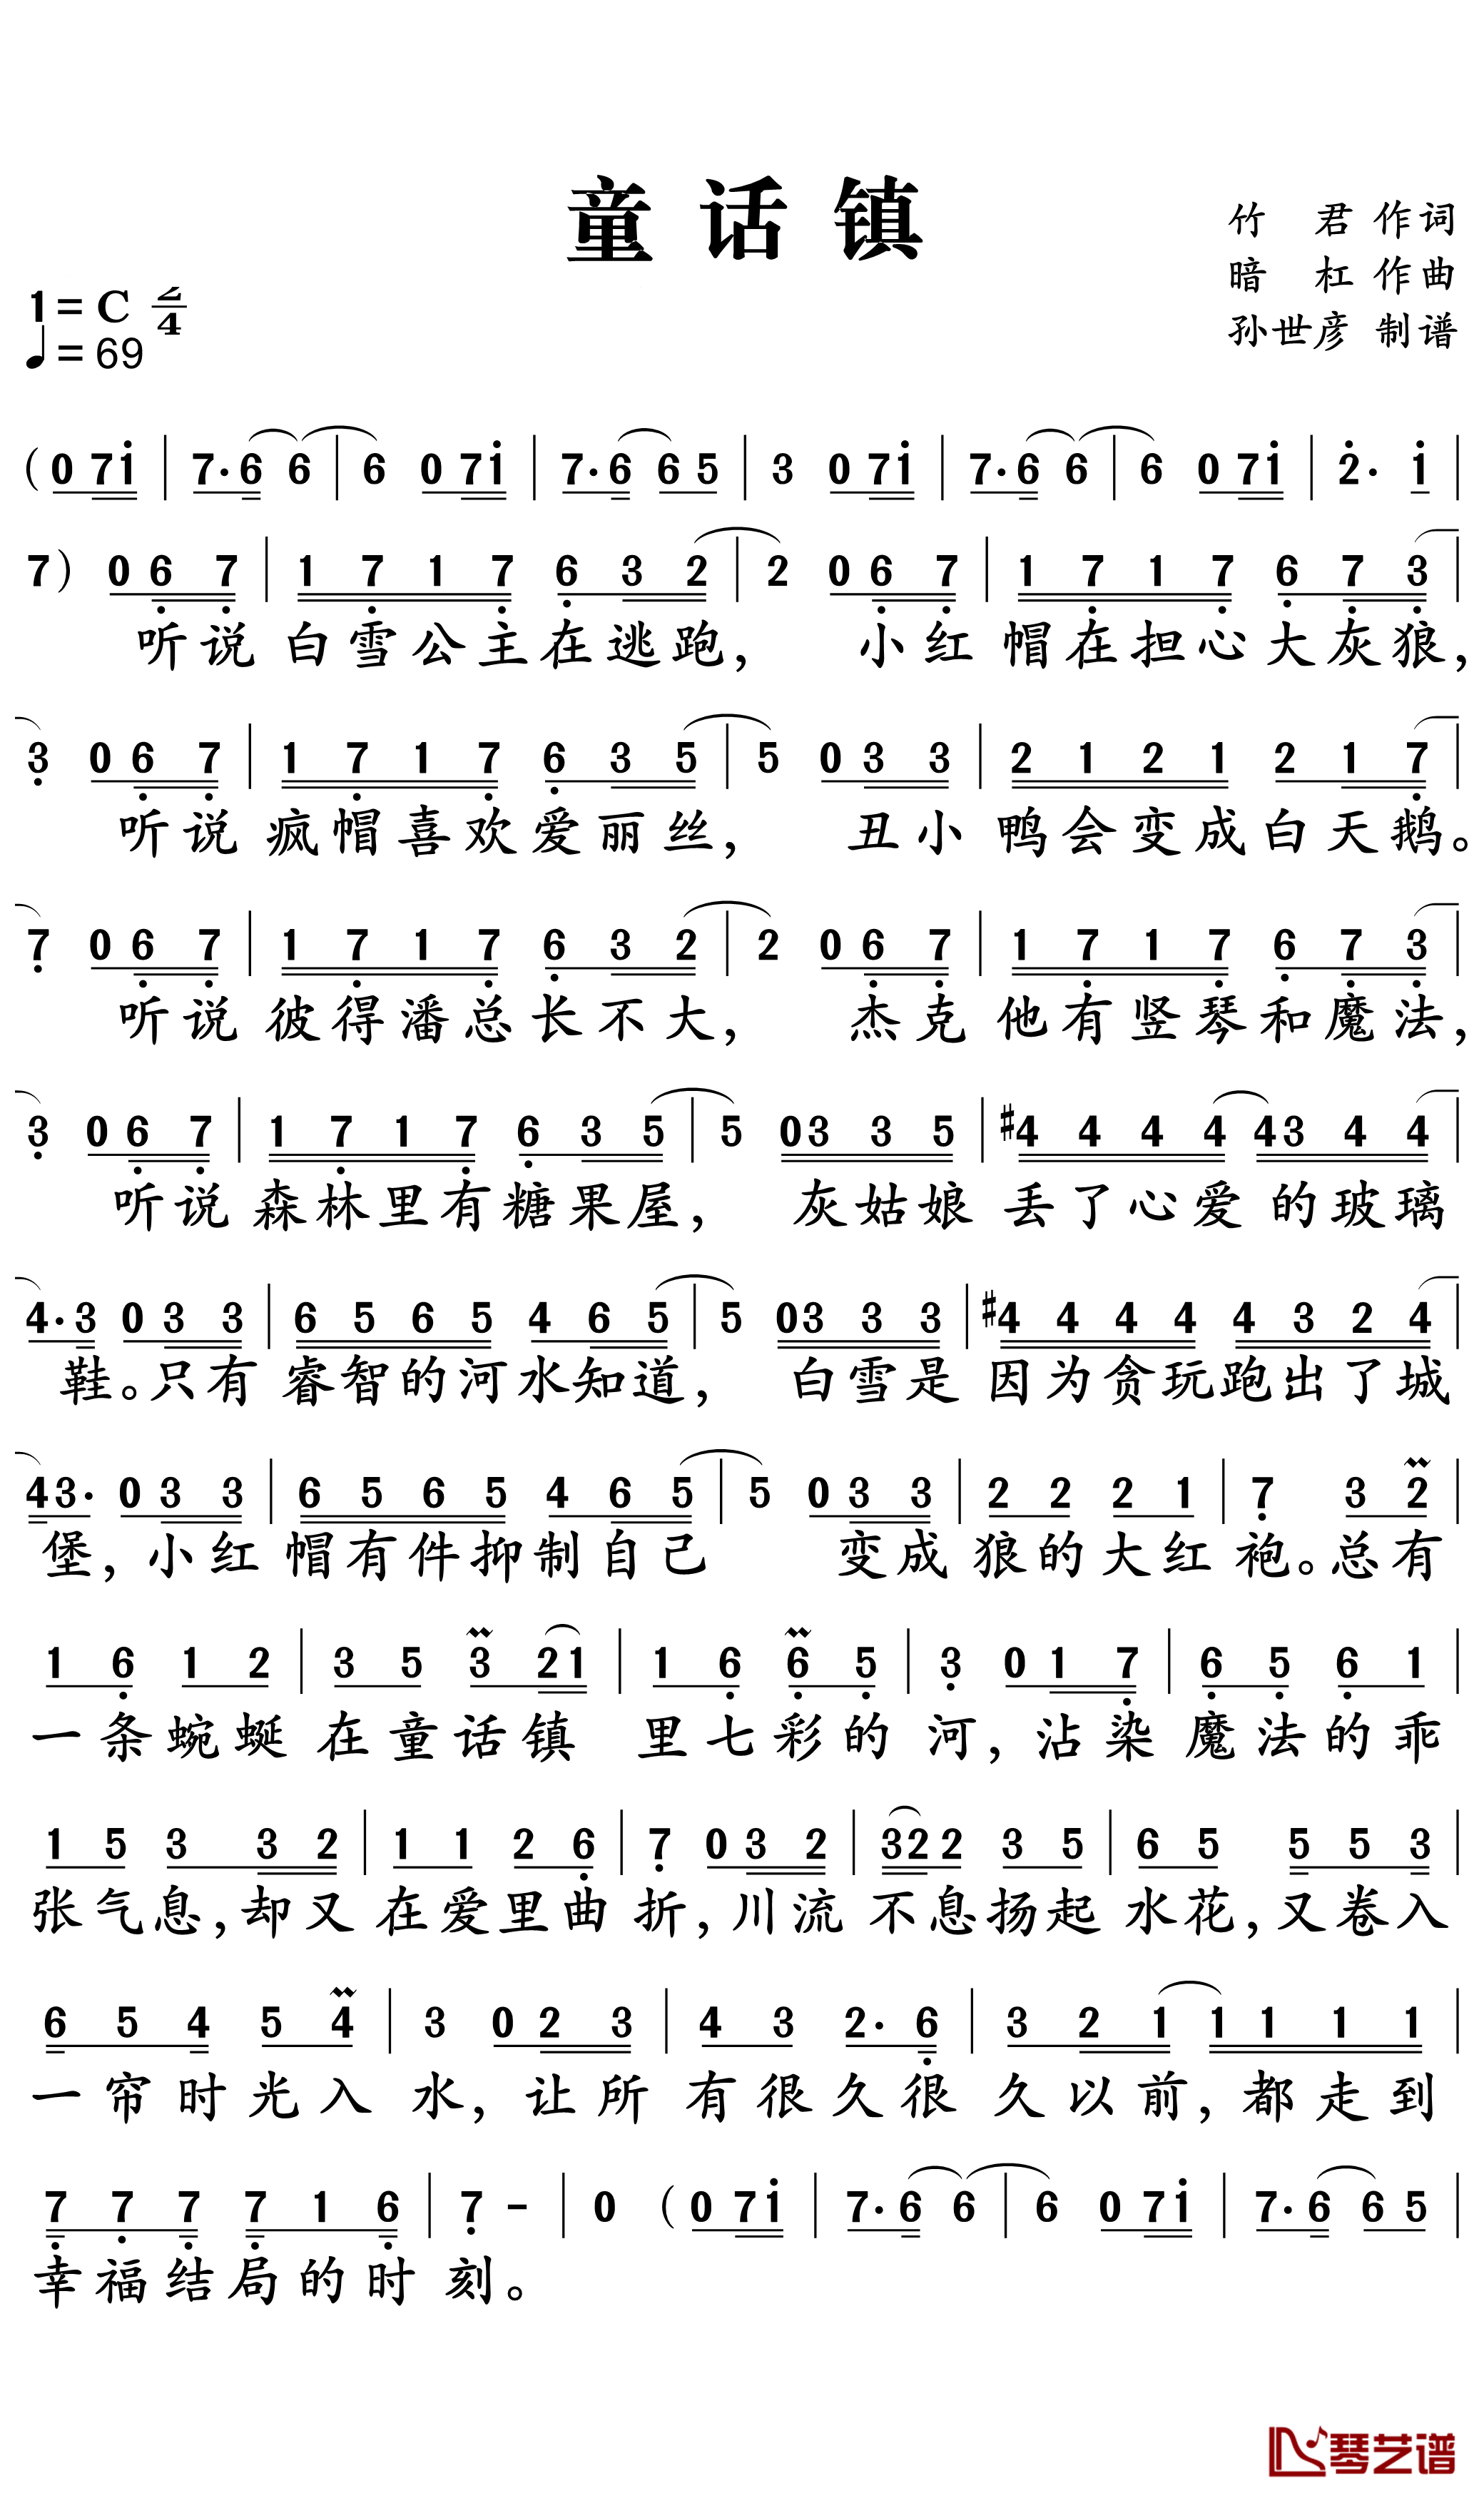 童话镇
竹 君 作词
暗 杠 作曲
孙世彦 制谱
1=C 2/4
♩=69
(0 7i | 7·6 6 | 6 0 7i | 7·6 6 5 | 3 0 7i | 7·6 6 | 6 0 7i | 2· i |
7) 0 6 7 | 1 7 1 7 6 3 2 | 2 0 6 7 | 1 7 1 7 6 7 3 |
听说 白雪公主在逃跑, 小红 帽在担心大灰狼,
3 0 6 7 | 1 7 1 7 6 3 5 | 5 0 3 3 | 2 1 2 1 2 1 7 |
听说 疯帽喜欢爱丽丝, 丑小 鸭会变成白天鹅。
7 0 6 7 | 1 7 1 7 6 3 2 | 2 0 6 7 | 1 7 1 7 6 7 3 |
听说 彼得潘总长不大, 杰克 他有竖琴和魔法,
3 0 6 7 | 1 7 1 7 6 3 5 | 5 0 3 3 5 | #4 4 4 4 4 3 4 4 |
听说 森林里有糖果屋, 灰姑娘 丢了心爱的玻璃
4·3 0 3 3 | 6 5 6 5 4 6 5 | 5 0 3 3 3 | #4 4 4 4 4 3 2 4 |
鞋。只有 睿智的河水知道, 白雪是 因为贪玩跑出了城
4 3· 0 3 3 | 6 5 6 5 4 6 5 | 5 0 3 3 | 2 2 2 1 | 7 3 2 |
堡, 小红 帽有件抑制自己 变成 狼的大红 袍。总有
1 6 1 2 | 3 5 3 2 1 | 1 6 6 5 | 3 0 1 7 | 6 5 6 1 |
一条蜿蜒 在童话镇 里七彩的 河, 沾染 魔法的乖
1 5 3 3 2 | 1 1 2 6 | 7 0 3 2 | 3 2 2 3 5 | 6 5 5 5 3 |
张气息, 却又 在爱里曲 折, 川流 不息扬起 水花, 又卷入
6 5 4 5 4 | 3 0 2 3 | 4 3 2· 6 | 3 2 1 1 1 1 1 |
一帘时光入 水, 让所 有很久很 久以前, 都走到
7 7 7 7 1 6 | 7 - | 0 (0 7i | 7·6 6 | 6 0 7i | 7·6 6 5 |
幸福结局的时 刻。
琴艺谱